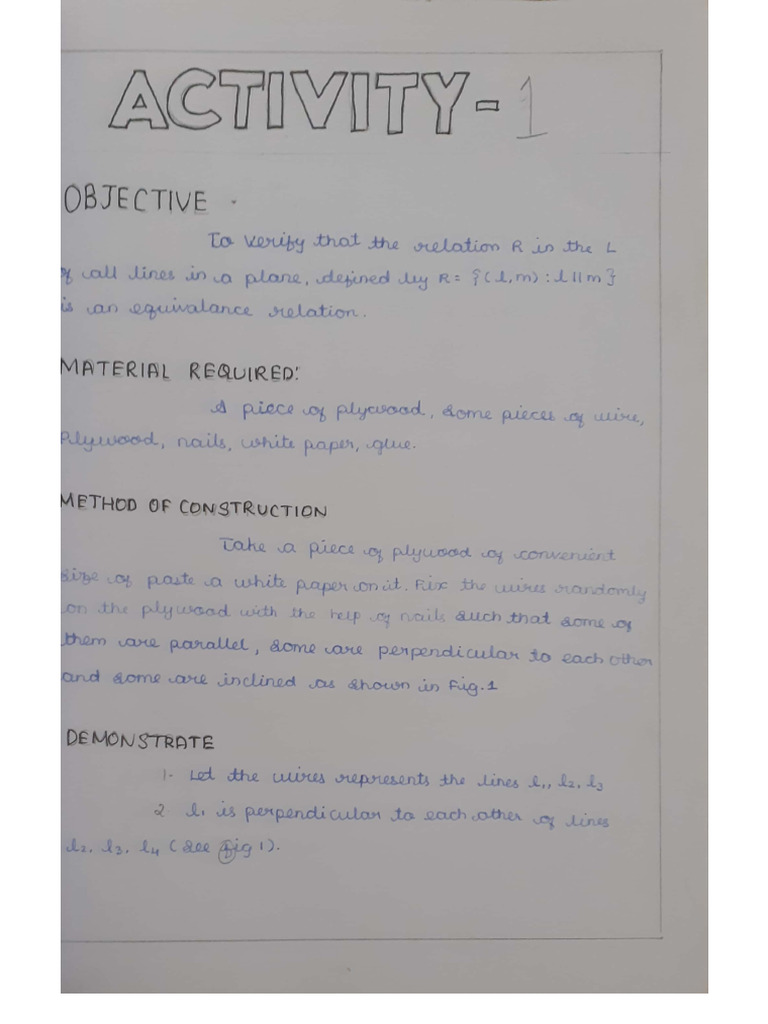 ACTIVITY-1
OBJECTIVE -
To verify that the relation R in the L
of all lines in a plane, defined by R= {(l,m) : l || m}
is an equivalance relation.
MATERIAL REQUIRED:
A piece of plywood, some pieces of wire,
Plywood, nails, white paper, glue.
METHOD OF CONSTRUCTION
Take a piece of plywood of convenient
size of paste a white paper on it. Fix the wires randomly
on the plywood with the help of nails such that some of
them are parallel, some are perpendicular to each other
and some are inclined as shown in Fig.1
DEMONSTRATE
1. Let the wires represents the lines l1, l2, l3
2 l1 is perpendicular to each other of lines
l2, l3, l4 (See fig 1).